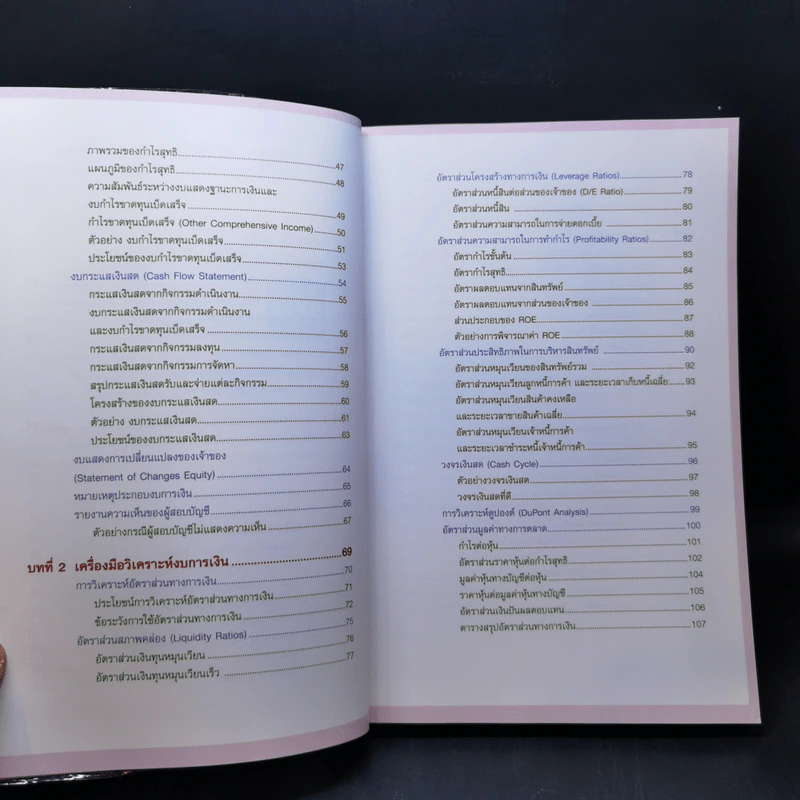 ภาพรวมของกำไรสุทธิ....47
แผนภูมิของกำไรสุทธิ....48
ความสัมพันธ์ระหว่างงบแสดงฐานะการเงินและ
งบกำไรขาดทุนเบ็ดเสร็จ....49
กำไรขาดทุนเบ็ดเสร็จ (Other Comprehensive Income)....50
ตัวอย่าง งบกำไรขาดทุนเบ็ดเสร็จ....51
ประโยชน์ของงบกำไรขาดทุนเบ็ดเสร็จ....53
งบกระแสเงินสด (Cash Flow Statement)....54
กระแสเงินสดจากกิจกรรมดำเนินงาน....55
งบกระแสเงินสดจากกิจกรรมดำเนินงาน
และงบกำไรขาดทุนเบ็ดเสร็จ....56
กระแสเงินสดจากกิจกรรมลงทุน....57
กระแสเงินสดจากกิจกรรมการจัดหา....58
สรุปกระแสเงินสดรับและจ่ายแต่ละกิจกรรม....59
โครงสร้างของงบกระแสเงินสด....60
ตัวอย่าง งบกระแสเงินสด....61
ประโยชน์ของงบกระแสเงินสด....63
งบแสดงการเปลี่ยนแปลงของเจ้าของ
(Statement of Changes Equity)....64
หมายเหตุประกอบงบการเงิน....65
รายงานความเห็นของผู้สอบบัญชี....66
ตัวอย่างกรณีผู้สอบบัญชีไม่แสดงความเห็น....67
บทที่ 2 เครื่องมือวิเคราะห์งบการเงิน....69
การวิเคราะห์อัตราส่วนทางการเงิน....70
ประโยชน์การวิเคราะห์อัตราส่วนทางการเงิน....71
ข้อระวังการใช้อัตราส่วนทางการเงิน....72
อัตราส่วนสภาพคล่อง (Liquidity Ratios)....75
อัตราส่วนเงินทุนหมุนเวียน....76
อัตราส่วนเงินทุนหมุนเวียนเร็ว....77
อัตราส่วนโครงสร้างทางการเงิน (Leverage Ratios)....78
อัตราส่วนหนี้สินต่อส่วนของเจ้าของ (D/E Ratio)....79
อัตราส่วนหนี้สิน....80
อัตราส่วนความสามารถในการจ่ายดอกเบี้ย....81
อัตราส่วนความสามารถในการทำกำไร (Profitability Ratios)....82
อัตรากำไรขั้นต้น....83
อัตรากำไรสุทธิ....84
อัตราผลตอบแทนจากสินทรัพย์....85
อัตราผลตอบแทนจากส่วนของเจ้าของ....86
ส่วนประกอบของ ROE....87
ตัวอย่างการพิจารณาค่า ROE....88
อัตราส่วนประสิทธิภาพในการบริหารสินทรัพย์....90
อัตราส่วนหมุนเวียนของสินทรัพย์รวม....92
อัตราส่วนหมุนเวียนลูกหนี้การค้า และระยะเวลาเก็บหนี้เฉลี่ย....93
อัตราส่วนหมุนเวียนสินค้าคงเหลือ
และระยะเวลาขายสินค้าเฉลี่ย....94
อัตราส่วนหมุนเวียนเจ้าหนี้การค้า
และระยะเวลาชำระหนี้เจ้าหนี้การค้า....95
วงจรเงินสด (Cash Cycle)....96
ตัวอย่างวงจรเงินสด....97
วงจรเงินสดที่ดี....98
การวิเคราะห์ดูปองต์ (DuPont Analysis)....99
อัตราส่วนมูลค่าทางการตลาด....100
กำไรต่อหุ้น....101
อัตราส่วนราคาหุ้นต่อกำไรสุทธิ....102
มูลค่าหุ้นทางบัญชีต่อหุ้น....104
ราคาหุ้นต่อมูลค่าหุ้นทางบัญชี....105
อัตราส่วนเงินปันผลตอบแทน....106
ตารางสรุปอัตราส่วนทางการเงิน....107